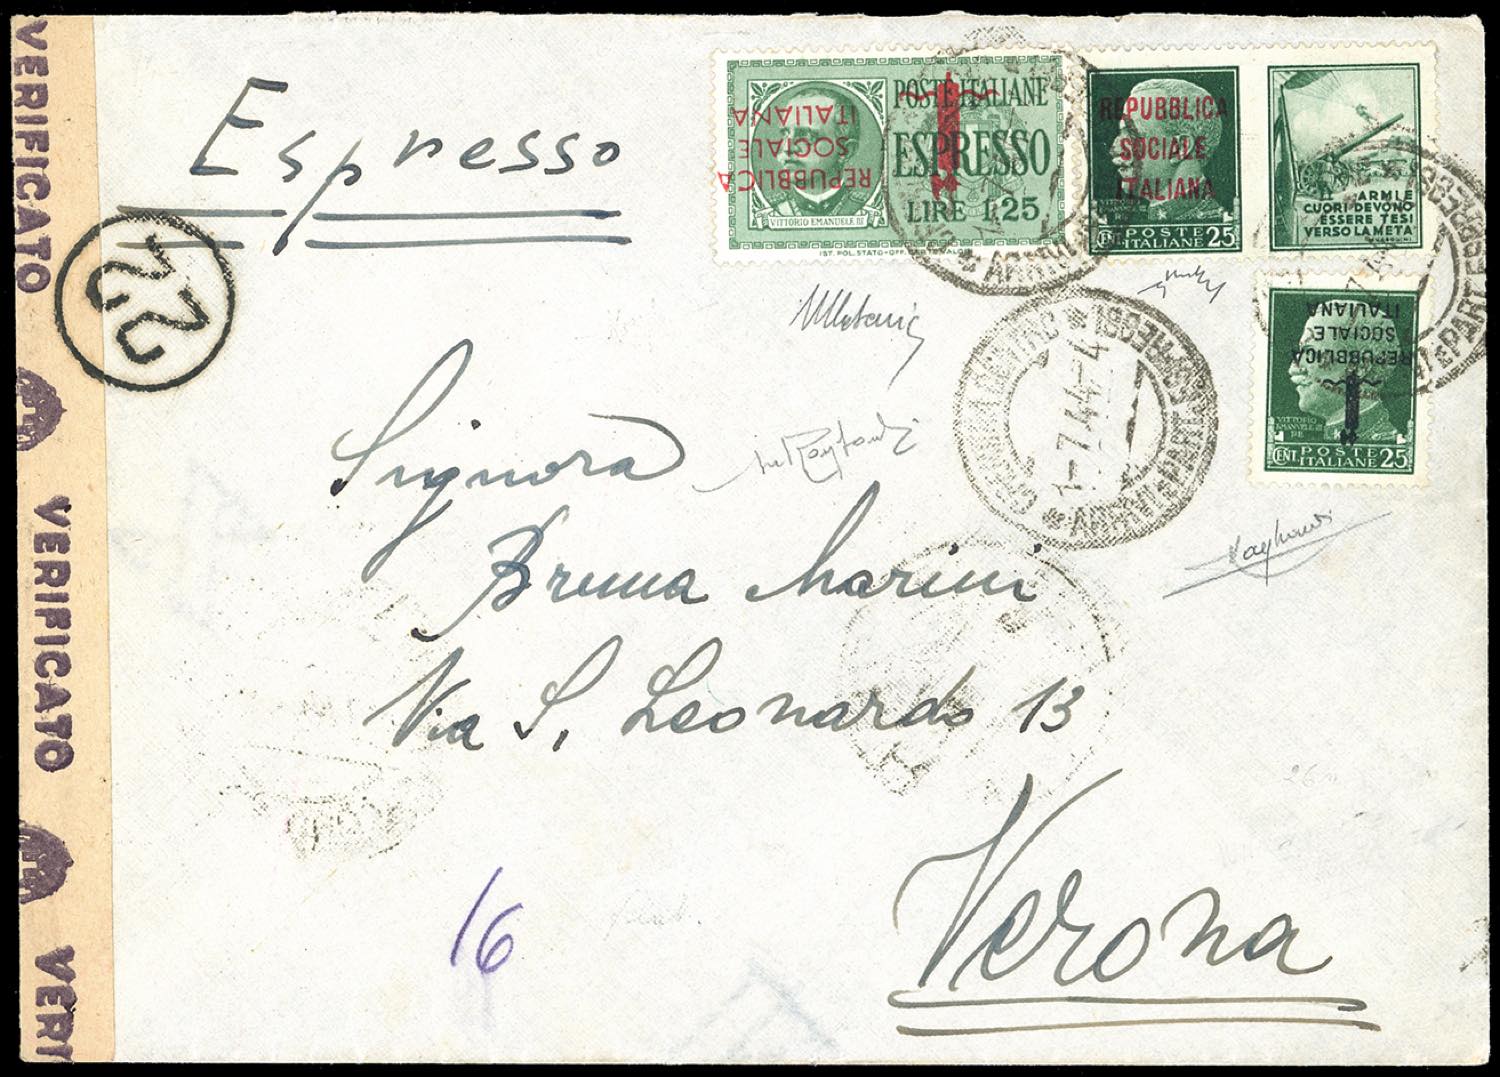 Espresso
VERIFICATO
VERIFICATO
VERI
22
POSTE ITALIANE
ESPRESSO
LIRE 1,25
VITTORIO EMANUELE III
REPUBBLICA
SOCIALE
ITALIANA
REPUBBLICA
SOCIALE
ITALIANA
CENT. POSTE
ITALIANE 25
ARMI E
CUORI DEVONO
ESSERE TESI
VERSO LA META
REPUBBLICA
SOCIALE
ITALIANA
VITTORIO
EMANUELE III
RE
CENT. POSTE
ITALIANE 25
ARRIVI E PARTENZE
-7.44-4
Signora
Bruna Marini
Via S. Leonardo 13
Verona
16